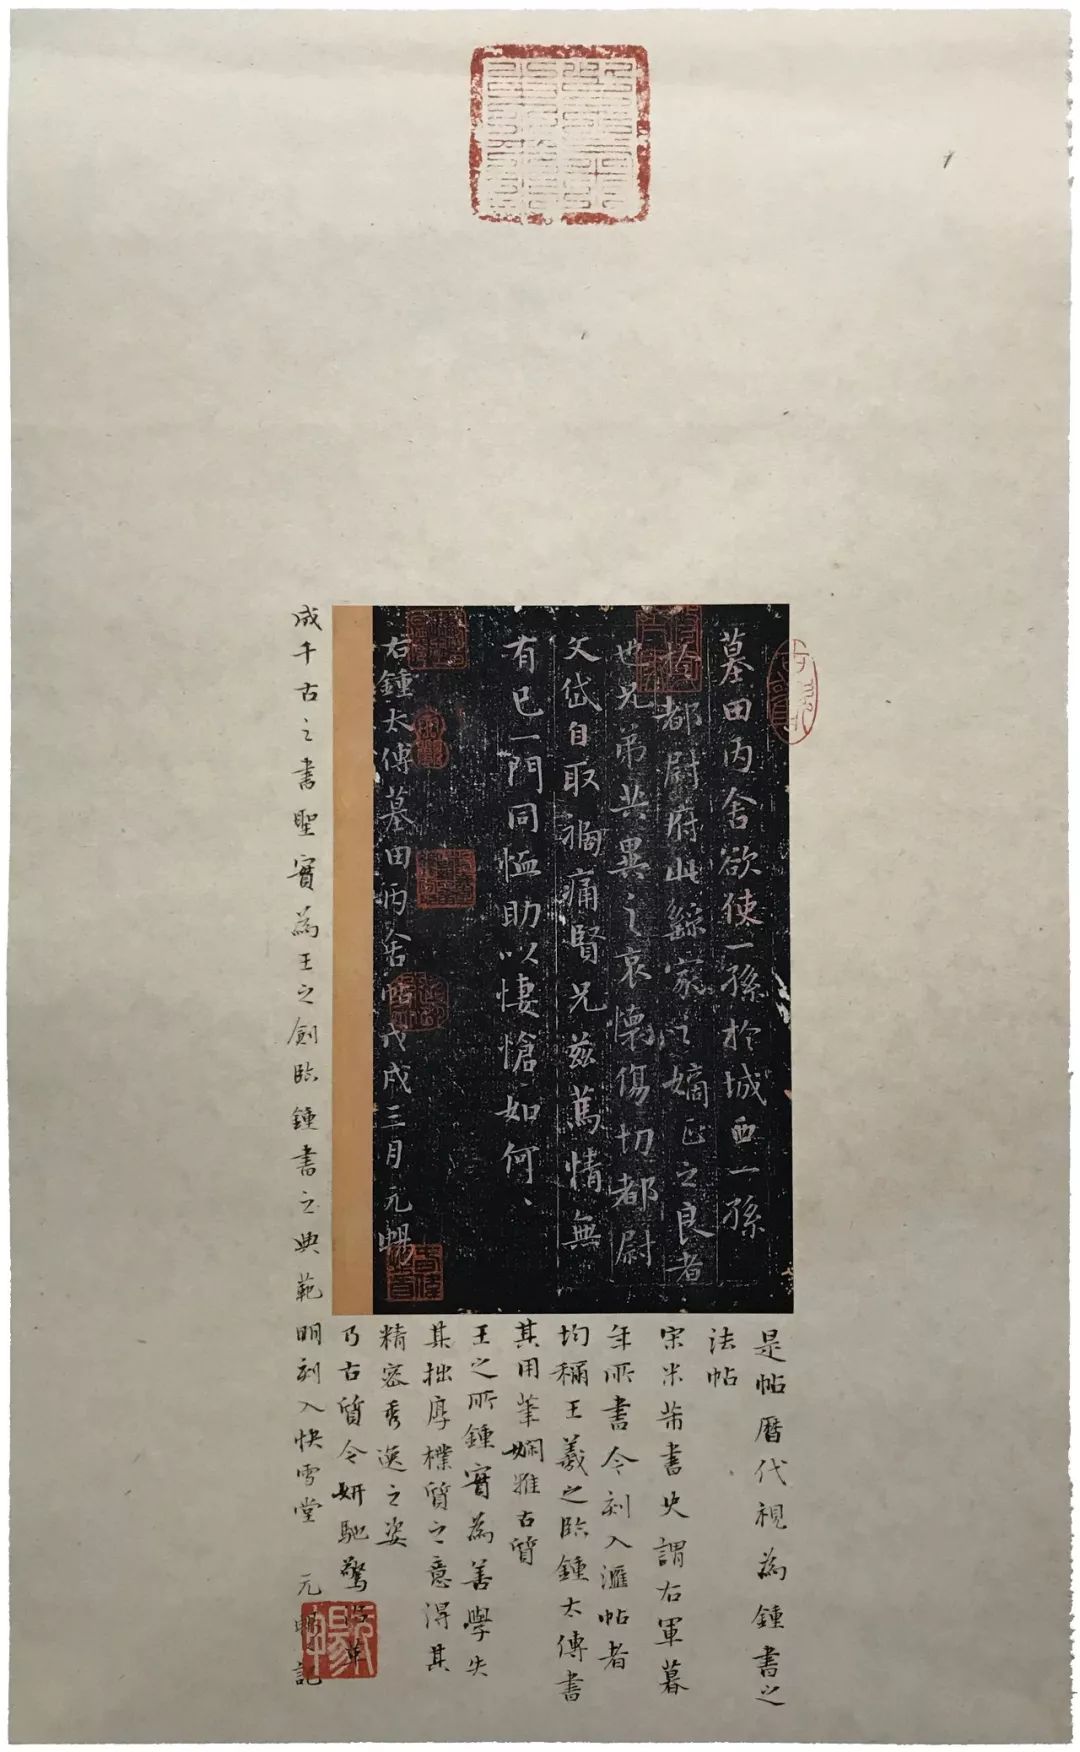 墓田丙舍欲使一孫於城西一孫
於都尉府此繇家之嫡正之良者
也兄弟共異之哀懷傷切都尉
文岱自取禍痛賢兄慈篤情無
有已一門同恤助以悽愴如何
右鍾太傅墓田丙舍帖戊戌三月元暘
是帖曆代視為鍾書之
法帖
宋米芾書史謂右軍暮
年所書令刻入滙帖者
均稱王羲之臨鍾太傅書
其用筆嫻雅古質
王之所鍾實為善學失
其拙厚樸質之意得其
精密秀逸之姿
乃古質令妍馳驚
成千古之書聖實為王之劍臨鍾書之典範明刻入快雪堂 元暘記